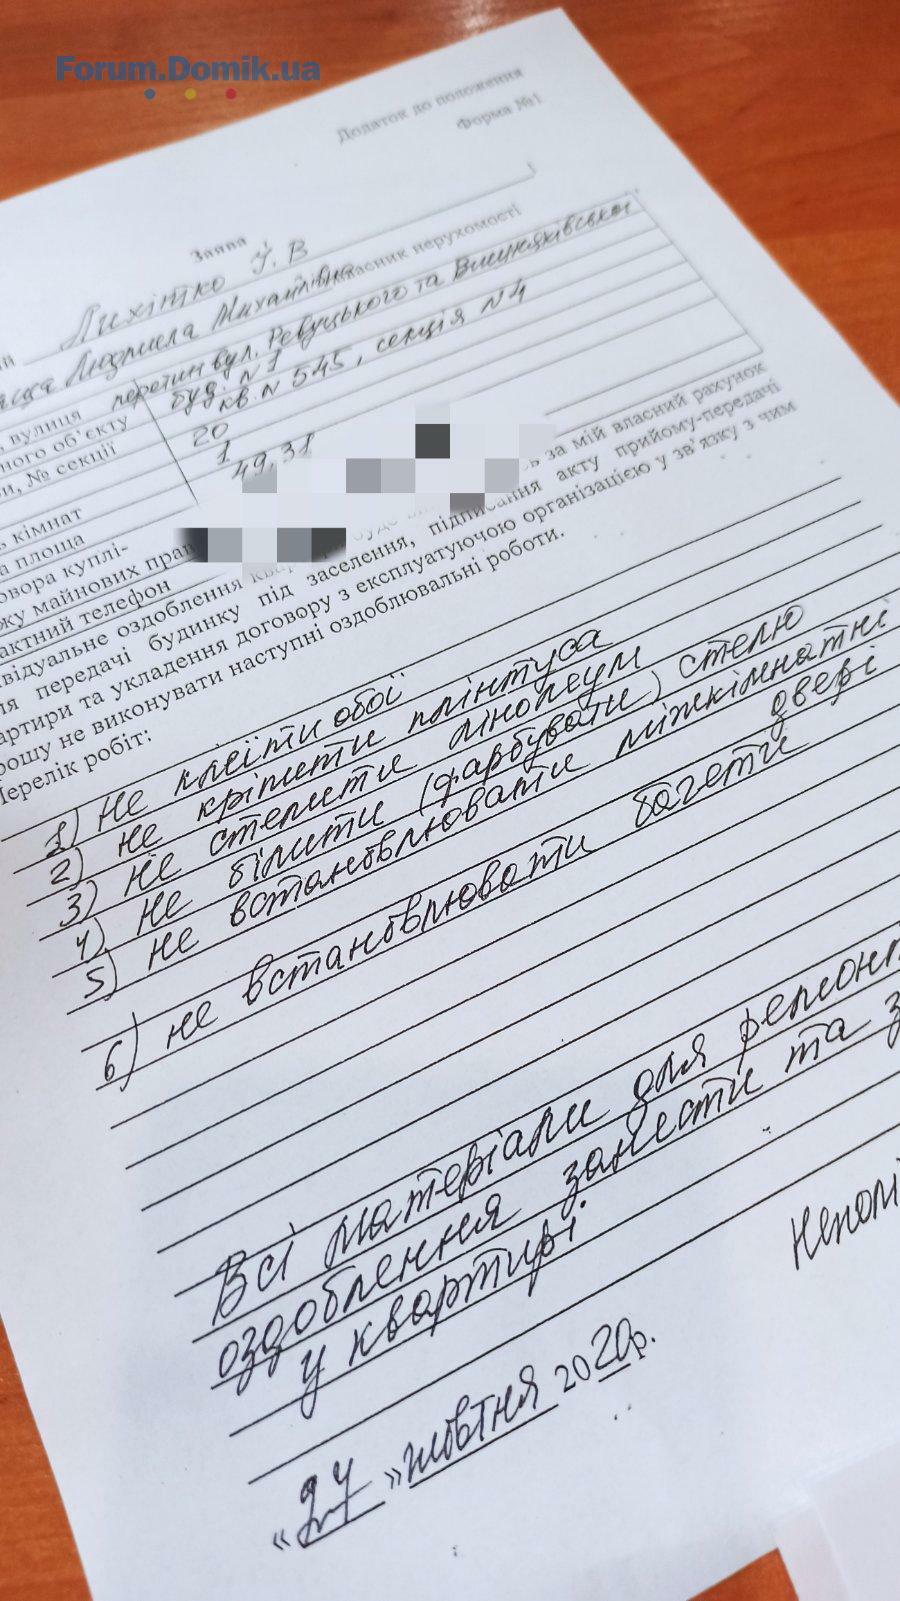 Forum.Domik.ua
Додаток до положення
Форма №1
Заява
Лихітко І. В
Людмила Михайлівна власник нерухомості
вулиця перетин вул. Ревуцького та Вишняківської
ного об'єкту буд. №1
и, № секції кв. N 545, секція N4
20
ь кімнат 1
а площа 49,31
овора куплі-
жу майнових прав
актний телефон
ь за мій власний рахунок
відуальне оздоблення
ля передачі будинку під заселення, підписання акту прийому-передачі
артири та укладення договору з експлуатуючою організацією у зв'язку з чим
рошу не виконувати наступні оздоблювальні роботи.
Перелік робіт:
1) Не клеїти обої
2) не кріпити плінтуса
3) не стелити лінолеум
4) не білити (фарбувати) стелю
5) не встановлювати міжкімнатні
двері
6) не встановлювати багети
Всі матеріали для ремонт
оздоблення занести та з
у квартирі
Неполі
«27» жовтня 2020р.